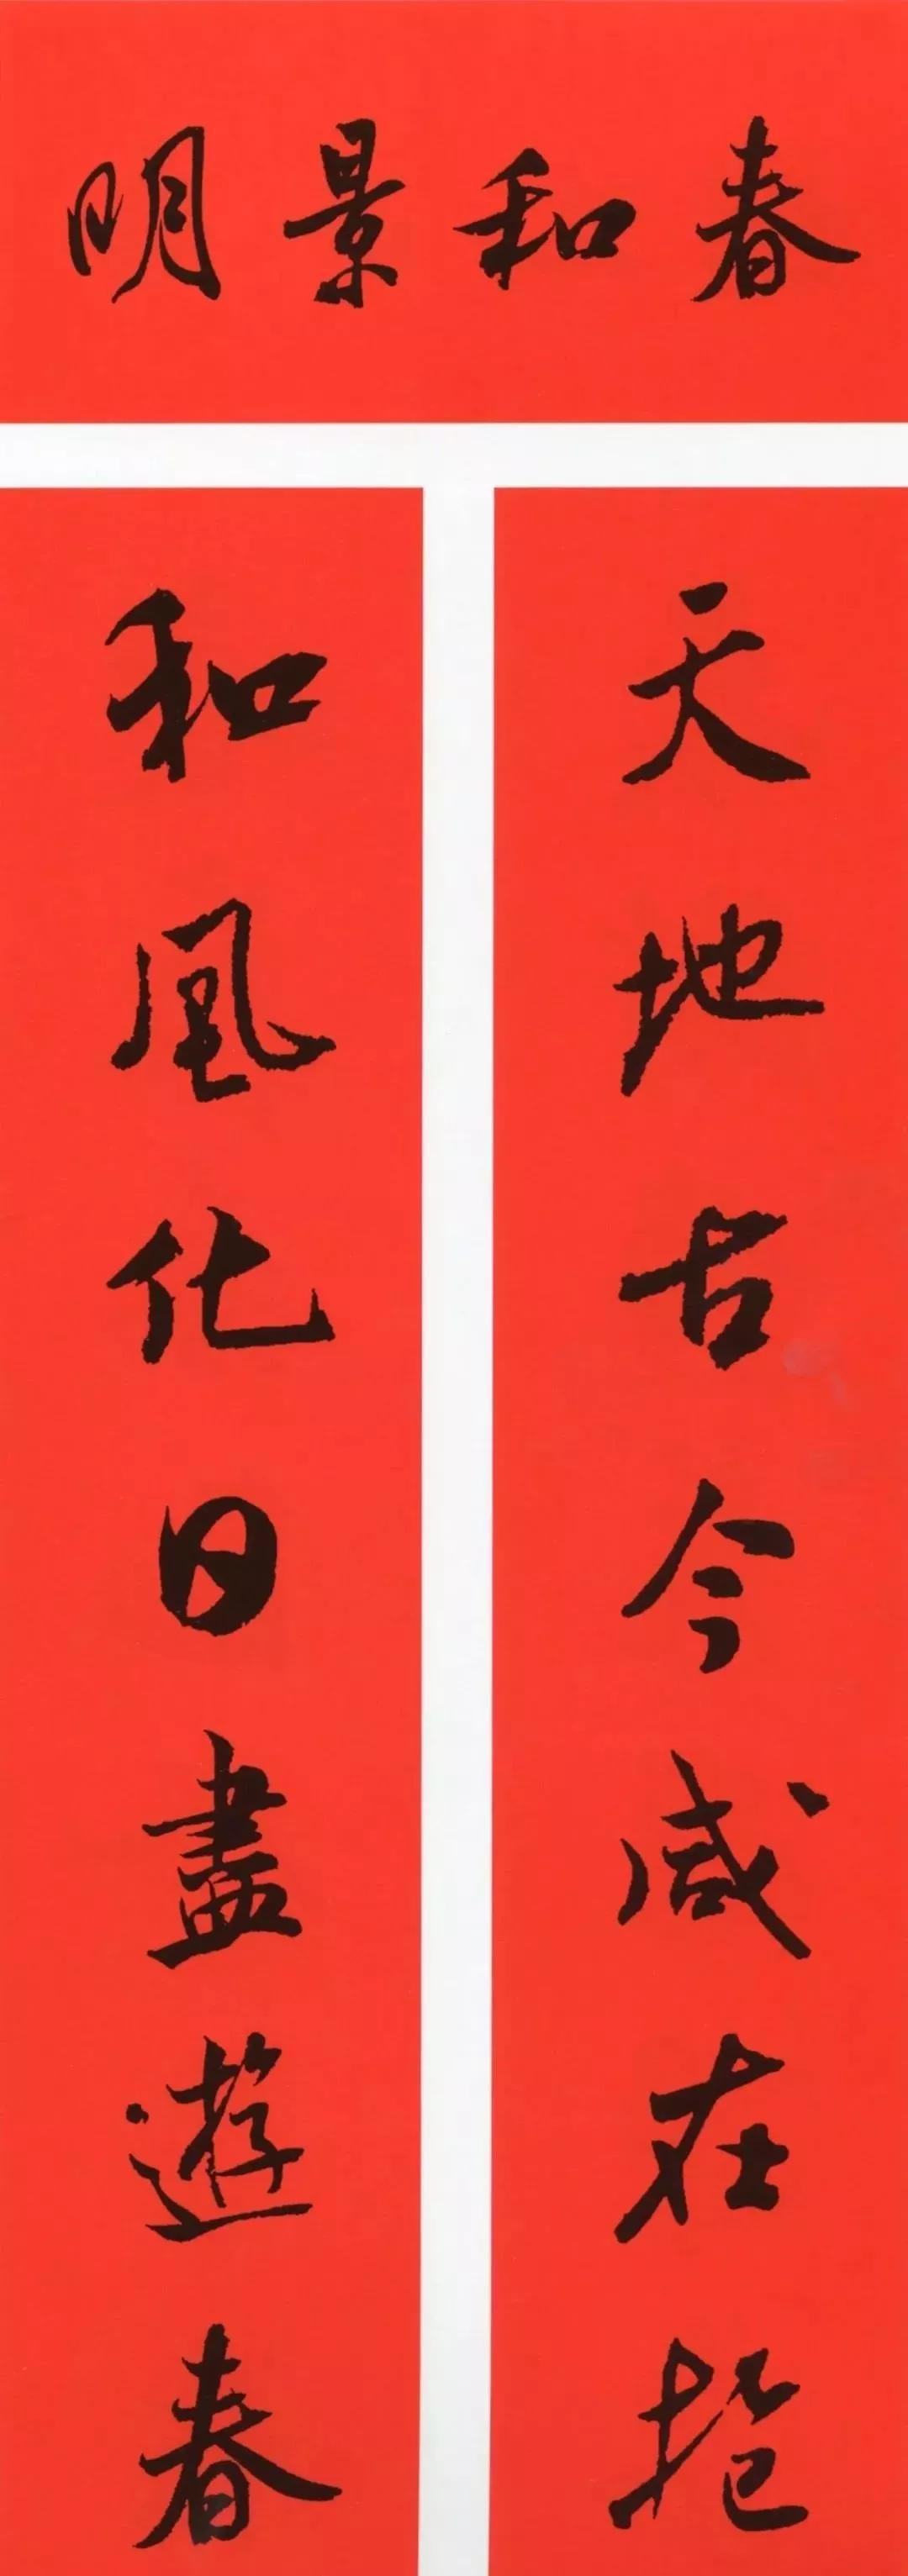 春和景明
天地古今咸在抱
和風化日盡遊春